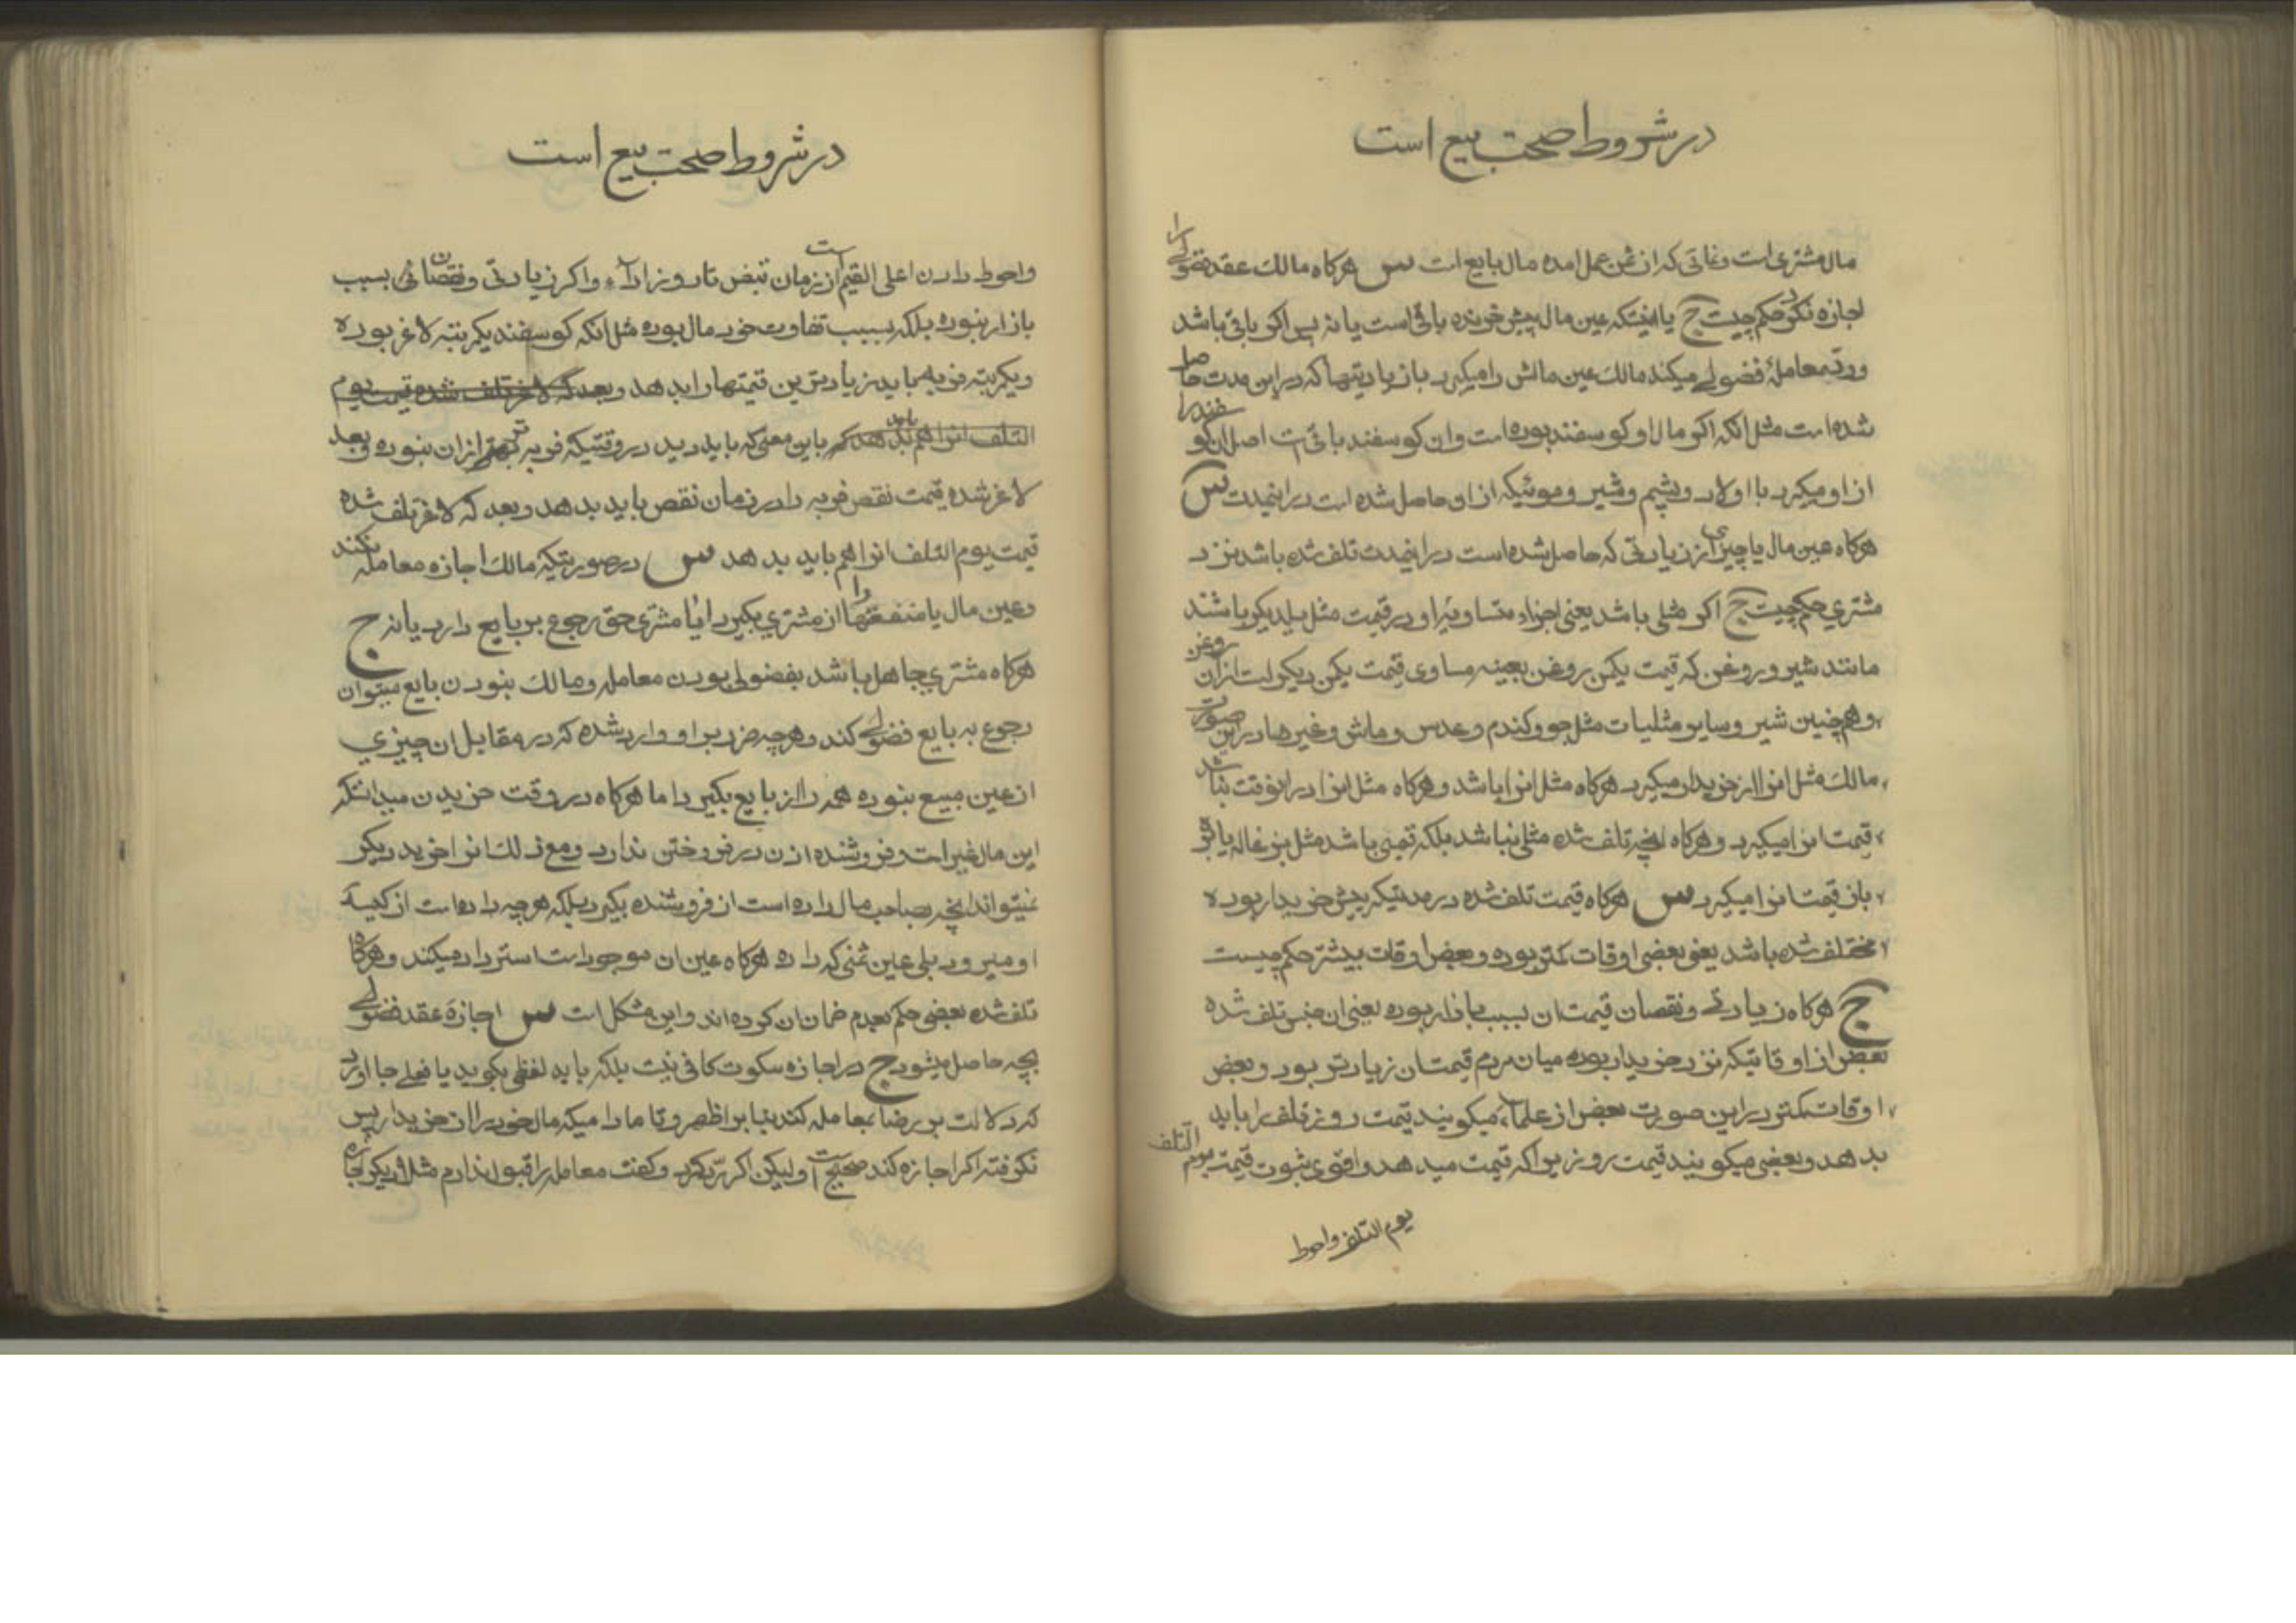 در شروط صحت بیع است
مال مشتری است و نمائی که از ثمن عمل امده مال بایع است س هرگاه مالک عقد فضولی را
اجازه نکرد حکم چیست ج یا اینستکه عین مال پیش خرنده باقی است یا نه پس اکر باقی باشد
ورد معاملهٔ فضولی میکند مالک عین مالش را میکیرد با زیادتیها که در این مدت حاصل
شده است مثل انکه اکر مال او کوسفند بوده است وان کوسفند باقی است اصل ان کوسفند را
از او میکیرد با اولاد و پشم و شیر و موئیکه از او حاصل شده است در اینمدت س
هرکاه عین مال یا چیزی از زیادتی که حاصل شده است در اینمدت تلف شده باشد نزد
مشتری حکم چیست ج اکر مثلی باشد یعنی اجزاء متساویه او در قیمت مثل یکدیکر باشند
مانند شیر و روغن که قیمت یکمن روغن بعینه مساوی قیمت یکمن دیکر است از ان روغن
و هم چنین شیر و سایر مثلیات مثل جو و کندم و عدس و ماش و غیرها در این صورت
مالک مثل انرا از خریدار میکیرد هرکاه مثل انرا باشد و هرکاه مثل انرا در انوقت نباشد
قیمت انرا میکیرد و هرکاه انچه تلف شده مثلی نباشد بلکه قیمی باشد مثل بزغاله یا
باز قیمت انرا میکیرد س هرکاه قیمت تلف شده در مدتیکه پیش خریدار بوده
مختلف شده باشد یعنی بعضی اوقات کمتر بوده و بعض اوقات بیشتر حکم چیست
ج هرکاه زیادتی و نقصان قیمت ان بسبب بازار بوده یعنی ان جنس تلف شده
بعض از اوقاتیکه نزد خریدار بوده میان مردم قیمت ان زیادتر بود و بعض
اوقات کمتر در این صورت بعض از علماء میکویند قیمت روز تلف را باید
بدهد و بعضی میکویند قیمت روزیرا که قیمت میدهد و اقوی ثبوت قیمت یوم التلف
یوم التلف واحوط
در شروط صحت بیع است
واحوط دادن اعلی القیم است از زمان قبض تا روز اداء و اکر زیادتی و نقصان بسبب
بازار نبوده بلکه بسبب تفاوت خود مال بوده مثل انکه کوسفند یکمرتبه لاغر بوده
و یکمرتبه فربه باید زیادترین قیمتها را بدهد و بعد که لاغر تلف شده قیمت یوم
التلف انرا هم باید بدهد باین معنی که باید دید در وقتیکه فربه تر از ان نبوده و بعد
لاغر شده قیمت نقص فربه را در زمان نقص باید بدهد و بعد که لاغر تلف شده
قیمت یوم التلف انرا هم باید بدهد س در صورتیکه مالک اجازه معامله نکند
و عین مال یا منفعتها را از مشتری بکیرد ایا مشتری حق رجوع بر بایع دارد یا نه ج
هرکاه مشتری جاهل باشد بفضولی بودن معامله و مالک نبودن بایع میتوان
رجوع به بایع فضولی کند و هرچه ضرر بر او وارد شده که در مقابل ان چیزی
از عین مبیع نبوده همه را از بایع بکیرد اما هرکاه در وقت خریدن میدانستکه
این مال غیر است و فروشنده اذن در فروختن ندارد و مع ذلک انرا خرید دیکر
نمیتواند انچه بصاحب مال داده است از فروشنده بکیرد بلکه هرچه داده است از کیسهٔ
او میرود بلی عین ثمنی که داده هرکاه عین ان موجود است استرداد میکند و هرکاه
تلف شده بعضی حکم بعدم ضمان ان کرده اند و این مشکل است س اجازهٔ عقد فضولی
بچه حاصل میشود ج در اجازه سکوت کافی نیست بلکه باید لفظی بکوید یا فعلی بجا اورد
که دلالت بر رضا بمعامله کند بنا بر اظهر و تا مادامیکه مال خود را از خریدار پس
نکرفته اکر اجازه کند صحیح است ولیکن اکر رد کرد و کفت معامله را قبول ندارم مثلا دیکر اجازه